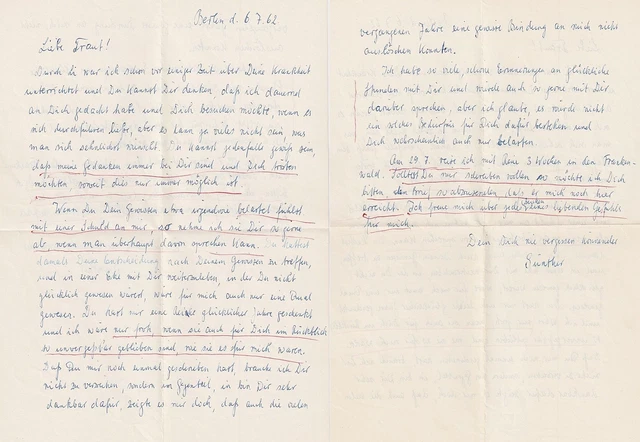 Berlin d. 6.7.62
Liebe Traut!
Durch  war ich schon vor einiger Zeit über Deine Krankheit
unterrichtet und Du kannst Dir denken, daß ich dauernd
an Dich gedacht habe und Dich besuchen möchte, wenn es
sich durchführen ließe, aber es kann ja vieles nicht sein, was
man sich sehnlichst wünscht. Du kannst jedenfalls gewiß sein,
daß meine Gedanken immer bei Dir sind und Dich trösten
möchten, soweit dies nur immer möglich ist.
Wenn Du Dein Gewissen etwa irgendwie belastet fühlst
mit einer Schuld an mir, so nehme ich sie Dir so gerne
ab, wenn man überhaupt davon sprechen kann. Du hattest
damals Deine Entscheidung nach Deinem Gewissen zu treffen,
und in einer Ehe mit Dir weiterzuleben, in der Du nicht
glücklich gewesen wärest, wäre für mich auch nur eine Qual
gewesen. Du hast mir eine Reihe glücklicher Jahre geschenkt
und ich wäre nur froh, wenn sie auch für Dich im Rückblick
so unvergeßbar geblieben sind, wie sie es für mich waren.
Daß Du mir noch einmal geschrieben hast, brauche ich Dir
nicht zu verzeihen, sondern im Gegenteil, ich bin Dir sehr
dankbar dafür, zeigte es mir doch, daß auch die vielen
vergangenen Jahre eine gewisse Bindung an mich nicht
auslöschen konnten.
Ich habe so viele schöne Erinnerungen an glückliche
Stunden mit Dir und würde auch so gerne mit Dir
darüber sprechen, aber ich glaube, es würde nicht
ein solches Bedürfnis für Dich dafür bestehen und
Dich wahrscheinlich auch nur belasten.
Am 29.7. reise ich mit  3 Wochen in den Franken-
wald. Solltest Du mir schreiben wollen so möchte ich Dich
bitten, den  so abzusenden, daß er mich noch hier
erreicht. Ich freue mich über jedes Zeichen eines liebenden Gefühls
für mich.
Dein Dich nie vergessen könnender
Günther